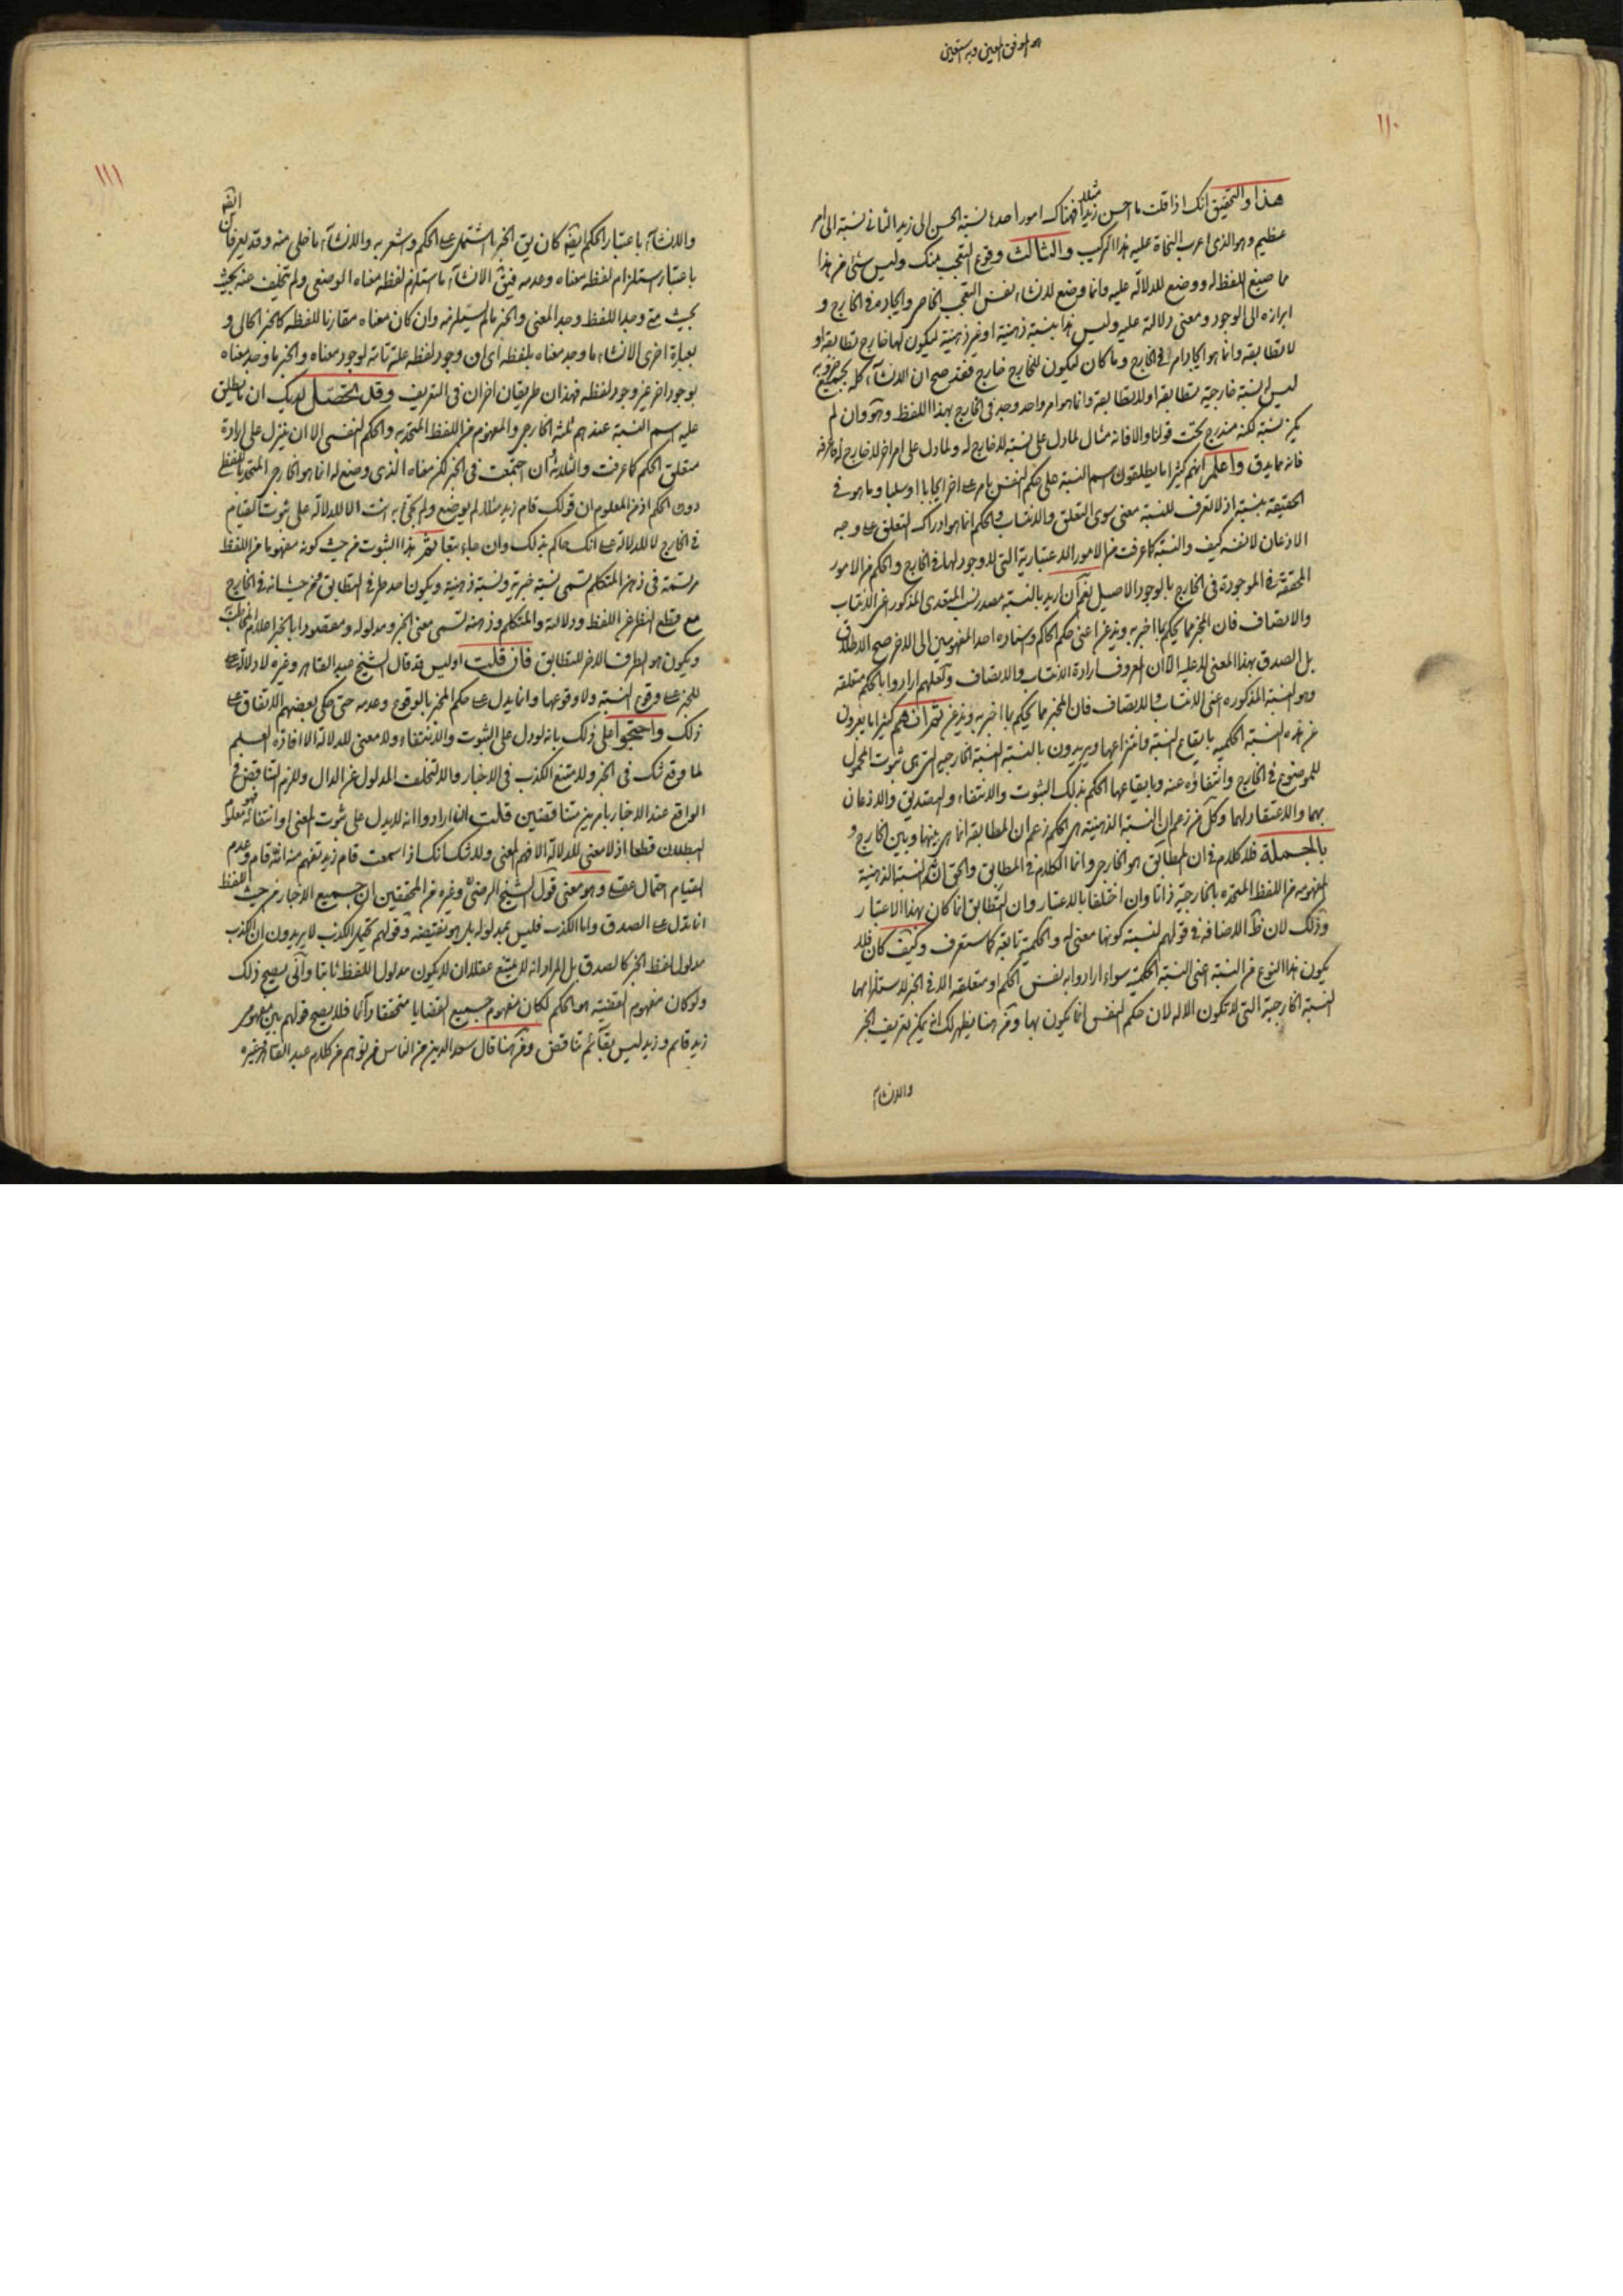 هو الموفق المعين وبه نستعين
١١٠
هذا والتحقيق انك اذا قلت ما احسن زيدا مثلا فهناك امور احدها نسبة الحسن الى زيد الثاني نسبة الى امر
عظيم وهو الذي اعرب النحاة عليه هذا التركيب والثالث وقوع التعجب منك وليس شئ من هذا
مما صيغ اللفظ له ووضع للدلالة عليه وانما وضع لانشاء نفس التعجب الخاص وايجاده في الخارج و
ابرازه الى الوجود ومعنى دلالته عليه وليس هذا بنسبة ذهنية او غير ذهنية ليكون لها خارج تطابقه او
لا تطابقه وانما هو ايجاد امر في الخارج وما كان ليكون للخارج خارج فقد صح ان الانشاء كله بجميع ضروبه
ليس له نسبة خارجية تطابقه او لا تطابقه وانما هو امر واحد وجد في الخارج بهذا اللفظ وهو وان لم
يكن نسبة لكنه مندرج تحت قولنا والا فانه مثال لما دل على نسبة لا خارج له ولما دل على امر اخر لا خارج له
فانه مما يدق واعلم انهم كثيرا ما يطلقون اسم النسبة على حكم النفس بامر على اخر ايجابا او سلبا وما هو في
الحقيقة بنسبة اذ لا تعرف للنسبة معنى سوى التعلق والانتساب والحكم انما هو ادراك التعلق على وجه
الاذعان لا نفسه كيف والنسبة كما عرفت من الامور الاعتبارية التي لا وجود لها في الخارج والحكم من الامور
المحققة الموجودة في الخارج بالوجود الاصيل نعم ان اريد بالنسبة مصدر نسب المتعدي المذكور اعني الانتساب
والاتصاف فان المخبر مما يحكم بما اخبر به ويذعن اعني حكم الحاكم واسناده احد المفهومين الى الاخر صح الاطلاق
بل الصدق بهذا المعنى لا عليه الا ان المعروف ارادة الانتساب والاتصاف ولعلهم ارادوا بالحكم متعلقه
وهو النسبة المذكورة اعني الانتساب والاتصاف فان المخبر مما يحكم بما اخبر به ويذعن ثم انهم كثيرا ما يعبرون
عن هذه النسبة الحكمية بايقاع النسبة وانتزاعها ويريدون بالنسبة النسبة الخارجية التي هي ثبوت المحمول
للموضوع في الخارج وانتفاؤه عنه وبايقاعها الحكم بذلك الثبوت والانتفاء والتصديق والاذعان
بهما والاعتقاد لهما وكل من زعم ان النسبة الذهنية هي الحكم زعم ان المطابقة انما هي بينها وبين الخارج و
بالجملة فلا كلام في ان المطابق هو الخارجي وانما الكلام في المطابق والحق انه النسبة الذهنية
المفهومة من اللفظ المتحدة بالخارجية ذاتا وان اختلفا بالاعتبار وان التطابق انما كان بهذا الاعتبار
وذلك لان ظ الاضافة في قولهم لنسبته كونها معنى له والحكمية تابعة كما ستعرف وكيف كان فلا
يكون هذا النوع من النسبة اعني النسبة الحكمية سواء ارادوا به نفس الحكم او متعلقه الا في الخبر لاستلزامها
النسبة الخارجية التي لا تكون الا له لان حكم النفس انما يكون بها ومن هنا يظهر لك انه يمكن تعريف الخبر
والانشاء
١١١
والانشاء باعتبار الحكم ايضا كان يق الخبر ما اشتمل على الحكم واشعر به والانشاء ما خلى منه وقد يعرفان ايضا
باعتبار استلزام لفظه معناه وعدمه فيق الانشاء ما استلزم لفظه معناه الوضعي ولم يتخلف عنه بحيث
بحيث متى وجد اللفظ وجد المعنى والخبر ما لم يستلزمه وان كان معناه مقارنا للفظه كالخبر الحالي و
بعبارة اخرى الانشاء ما وجد معناه بلفظه اي ان وجود لفظه علة تامة لوجود معناه والخبر ما وجد معناه
بوجود اخر غير وجود لفظه فهذان طريقان اخران في التعريف وقد تحصل لديك ان ما يطلق
عليه اسم النسبة عندهم ثلثة الخارجي والمفهوم من اللفظ المتحد به والحكم النفسي الا ان ينزل على ارادة
متعلق الحكم كما عرفت والثلاثة وان اجتمعت في الخبر لكن معناه الذي وضع له انما هو الخارجي المتحد باللفظ
دون الحكم اذ من المعلوم ان قولك قام زيد مثلا لم يوضع ولم يجئ به انت الا للدلالة على ثبوت القيام
في الخارج لا للدلالة على انك حاكم بذلك وان جاء تبعا ثم هذا الثبوت من حيث كونه مفهوما من اللفظ
مرتسمة في ذهن المتكلم تسمى نسبة خبرية ونسبة ذهنية ويكون احد طرفي التطابق ومن حيث انه في الخارج
مع قطع النظر عن اللفظ ودلالته والمتكلم وذهنه تسمى معنى الخبر ومدلوله ومقصودا بالخبر اعلام المخاطب
ويكون هو الطرف الاخر للتطابق فان قلت اوليس قد قال الشيخ عبد القاهر وغيره لا دلالة
للخبر على وقوع النسبة ولا وقوعها وانما يدل على حكم المخبر بالوقوع وعدمه حتى حكى بعضهم الاتفاق على
ذلك واحتجوا على ذلك بانه لو دل على الثبوت والانتفاء ولا معنى للدلالة الا افادة العلم
لما وقع شك في الخبر ولامتنع الكذب في الاخبار والا لتخلف المدلول عن الدال وللزم التناقض في
الواقع عند الاخبار بامرين متناقضين قلت ان ارادوا انه لا يدل على ثبوت المعنى او انتفائه فهو معلوم
البطلان قطعا اذ لا معنى للدلالة الا فهم المعنى ولا شك انك اذا سمعت قام زيد تفهم منه انه قام وعدم
القيام احتمال عقلي وهو معنى قول الشيخ الرضي وغيره من المحققين ان جميع الاخبار من حيث اللفظ
انما تدل على الصدق واما الكذب فليس بمدلوله بل هو نقيضه وقولهم يحتمل الكذب لا يريدون ان الكذب
مدلول لفظ الخبر كالصدق بل المراد انه لا يمتنع عقلا ان لا يكون مدلول اللفظ ثابتا وانى يصح ذلك
ولو كان مفهوم القضية هو الحكم لكان مفهوم جميع القضايا متحققا دائما فلا يصح قولهم بين مفهومي
زيد قائم وزيد ليس بقائم تناقض ومن هنا قال سعد الدين من الناس من توهم من كلام عبد القاهر وغيره